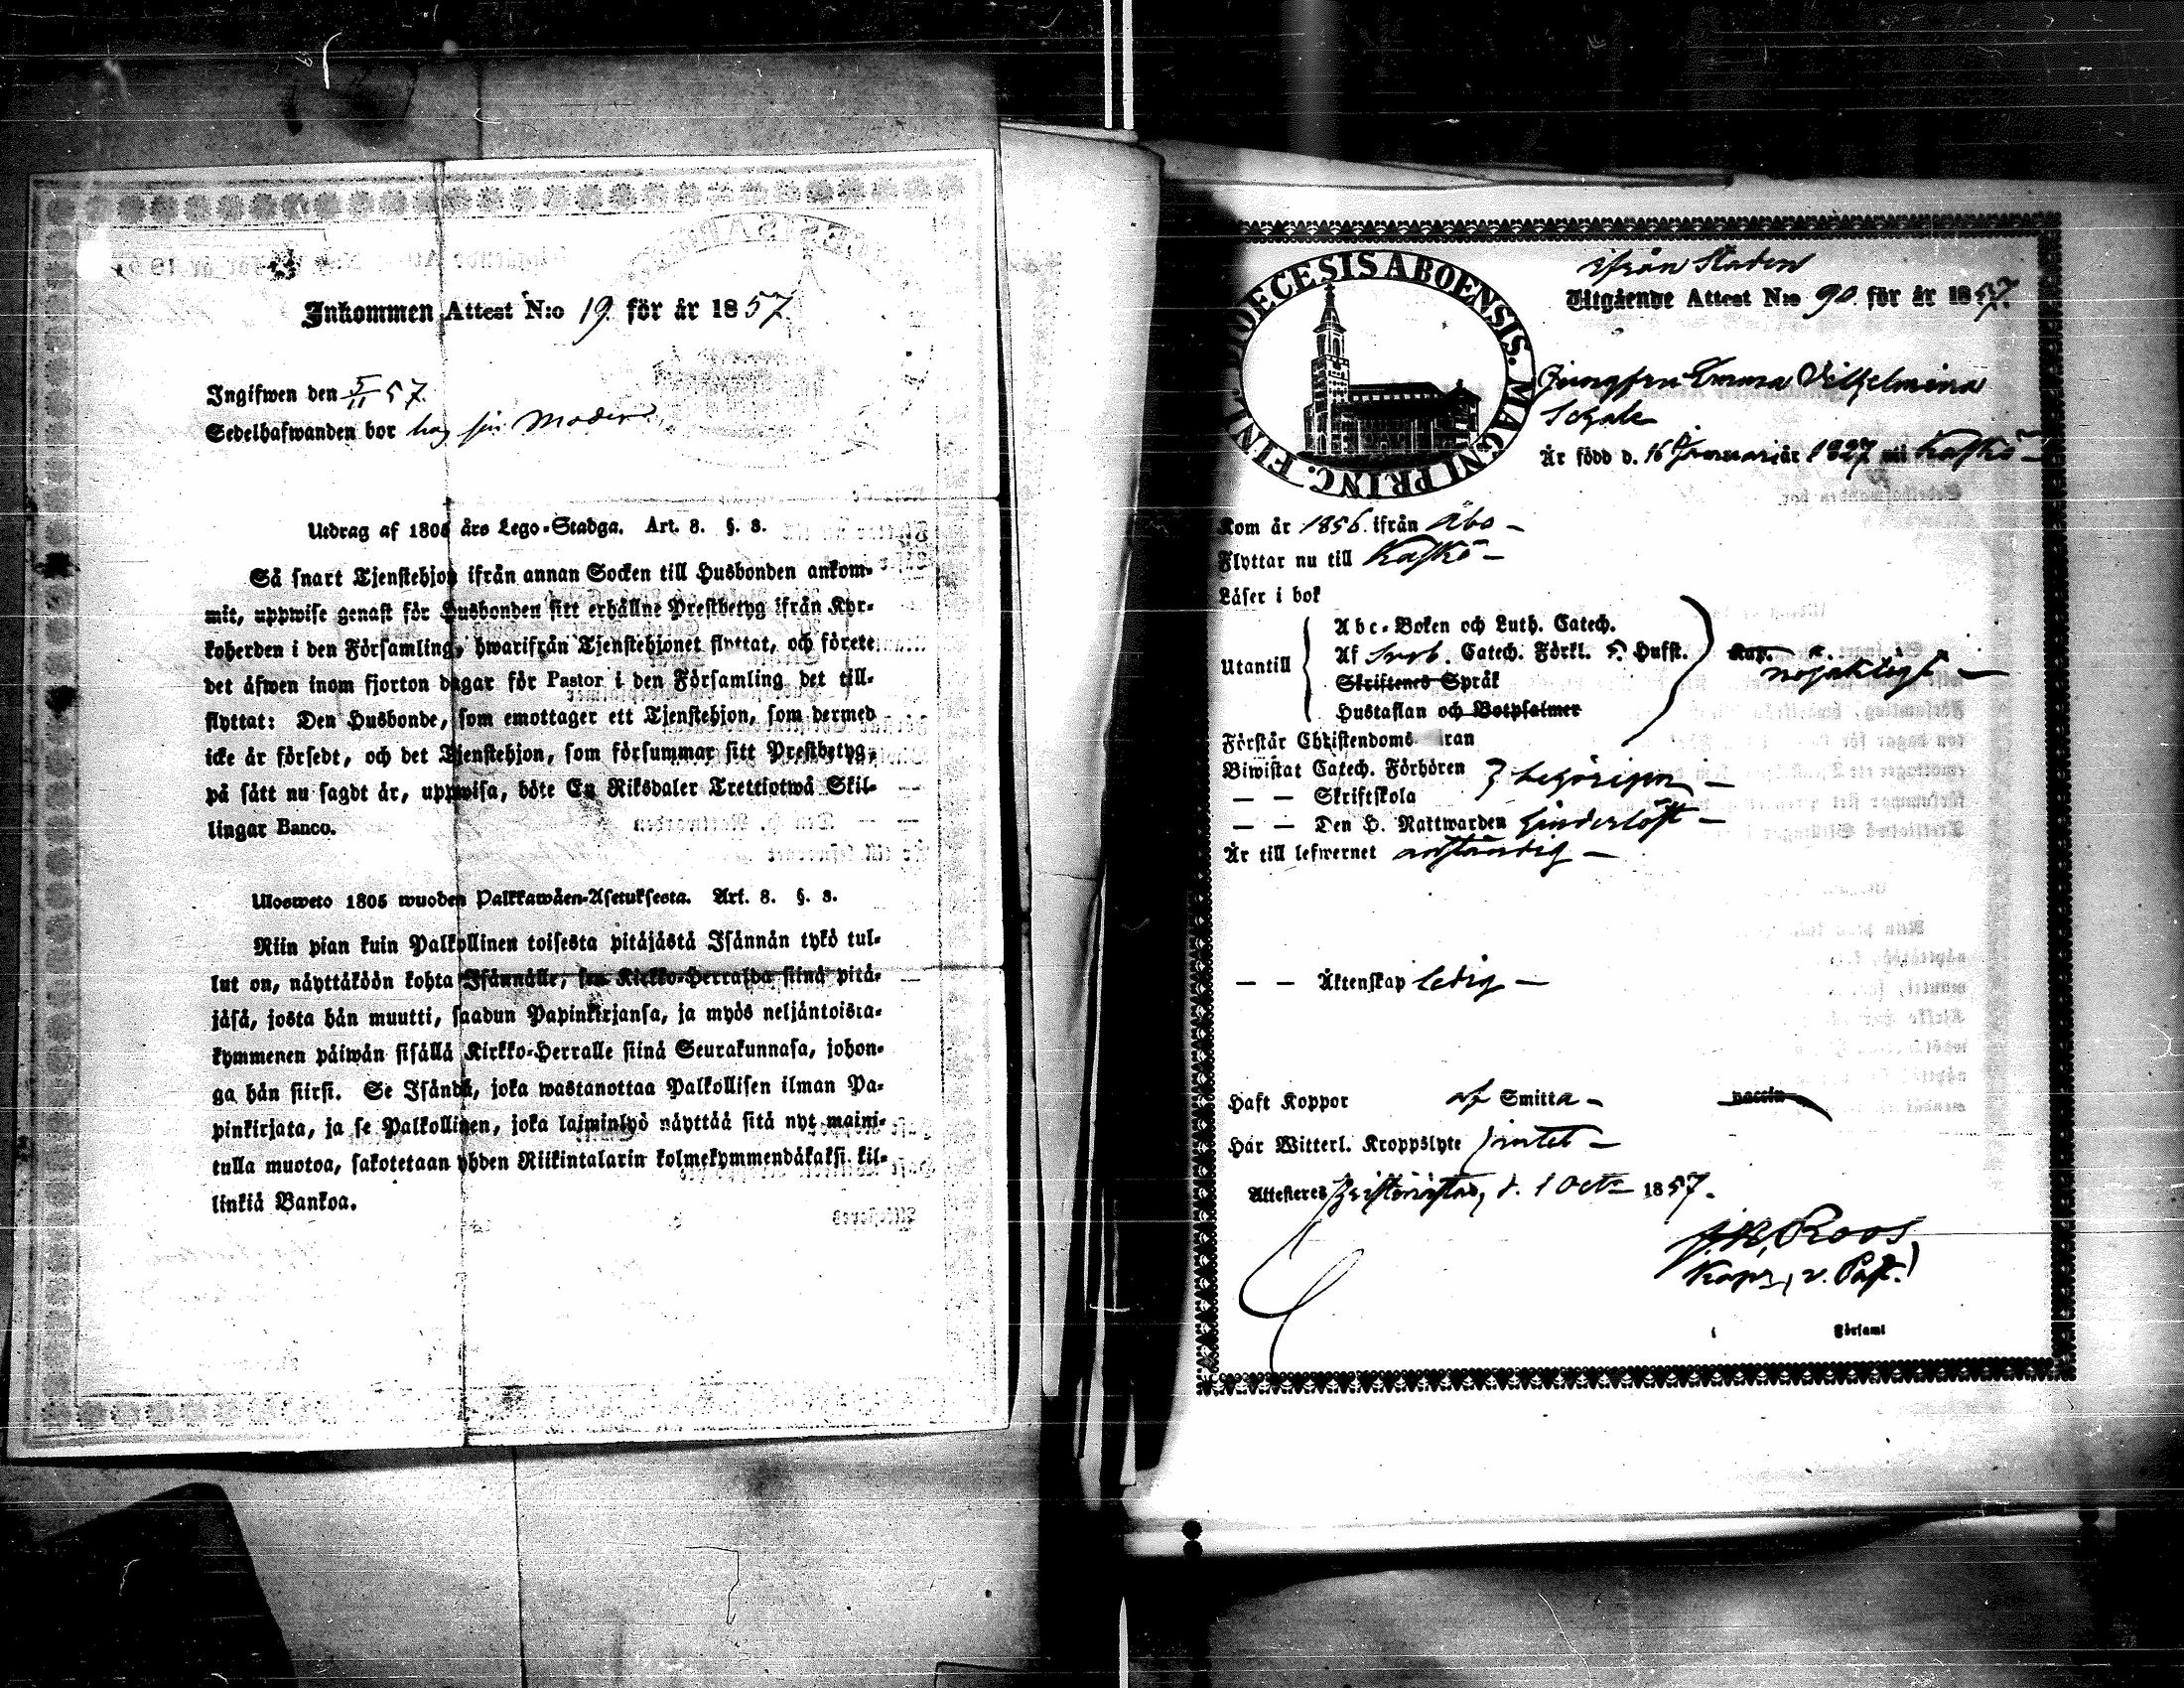 Inkommen Attest N:o 19. för år 1857.
Ingifwen den 5/11 57.
Sedelhafwanden bor hos sin Moder
Utdrag af 1805 års Lego-Stadga. Art. 8. §. 8.
Så snart Tjenstehjon ifrån annan Socken till Husbonden ankom-
mit, uppwise genast för Husbonden sitt erhållne Prestbetyg ifrån Kyr-
koherden i den Församling, hwarifrån Tjenstehjonet flyttat, och förete
det äfwen inom fjorton dagar för Pastor i den Församling det till-
flyttat: Den Husbonde, som emottager ett Tjenstehjon, som dermed
icke är försedt, och det Tjenstehjon, som försummar sitt Prestbetyg,
på sätt nu sagdt är, uppwisa, böte En Riksdaler Trettiotwå Skil-
lingar Banco.
Ulosweto 1805 wuoden Palkkawäen-Asetuksesta. Art. 8. §. 8.
Niin pian kuin Palkollinen toisesta pitäjästä Isännän tykö tul-
lut on, näyttäköön kohta Isännälle, sen Kirkko-Herralda siinä pitä-
jäsä, josta hän muutti, saadun Papinkirjansa, ja myös neljäntoista-
kymmenen päiwän sisällä Kirkko-Herralle siinä Seurakunnasa, johon-
ga hän siirsi. Se Isändä, joka wastanottaa Palkollisen ilman Pa-
pinkirjata, ja se Palkollinen, joka laiminlyö näyttää sitä nyt maini-
tulla muotoa, sakotetaan yhden Riikintalarin kolmekymmendäkaksi kil-
linkiä Bankoa.
DIOECESIS ABOENSIS. MAGNI PRINC. FINL.
ifrån Staden
Utgående Attest N:o 90 för år 1857.
Jungfru Emma Vilhelmina
Är född d. 16 Januari år 1827 uti Kaskö
Kom år 1856. ifrån Åbo –
Flyttar nu till Kaskö –
Läser i bok
Utantill
Abc-Boken och Luth. Catech.
Af Sveb. Catech. Förkl. Hufst.
Skriftenes Språk
Hustaflan och Botpsalmer
nöjaktigt –
Förstår Christendoms- iran
Biwistat Catech. Förhören
— — Skriftskola
behörigen –
— — Den H. Nattwarden hinderlöst –
Är till lefwernet anständig –
— — Äktenskap ledig –
Haft Koppor af Smitta – vaccin
Har Witterl. Kroppslyte intet –
Attesteras Christinestad, d. 1 Oct. 1857.
Roos
Kapl., v. Past.
Församl